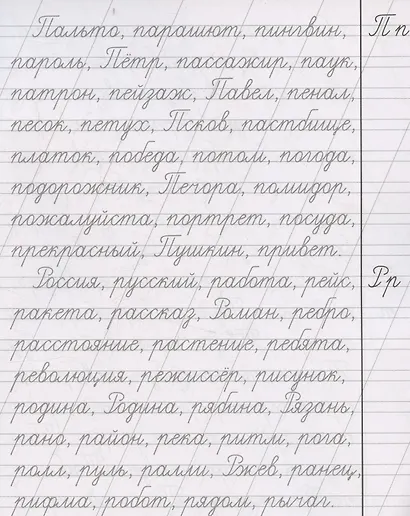 Пальто, парашют, пингвин, П п
пароль, Пётр, пассажир, паук,
патрон, пейзаж, Павел, пенал,
песок, петух, Псков, пастбище,
платок, победа, потом, погода,
подорожник, Печора, помидор,
пожалуйста, портрет, посуда,
прекрасный, Пушкин, привет.
Россия, русский, работа, рейс, Р р
ракета, рассказ, Роман, ребро,
расстояние, растение, ребята,
революция, режиссёр, рисунок,
родина, Родина, рябина, Рязань,
рано, район, река, ритм, рога,
ролл, руль, ралли, Ржев, ранец,
рифма, робот, рядом, рычаг.